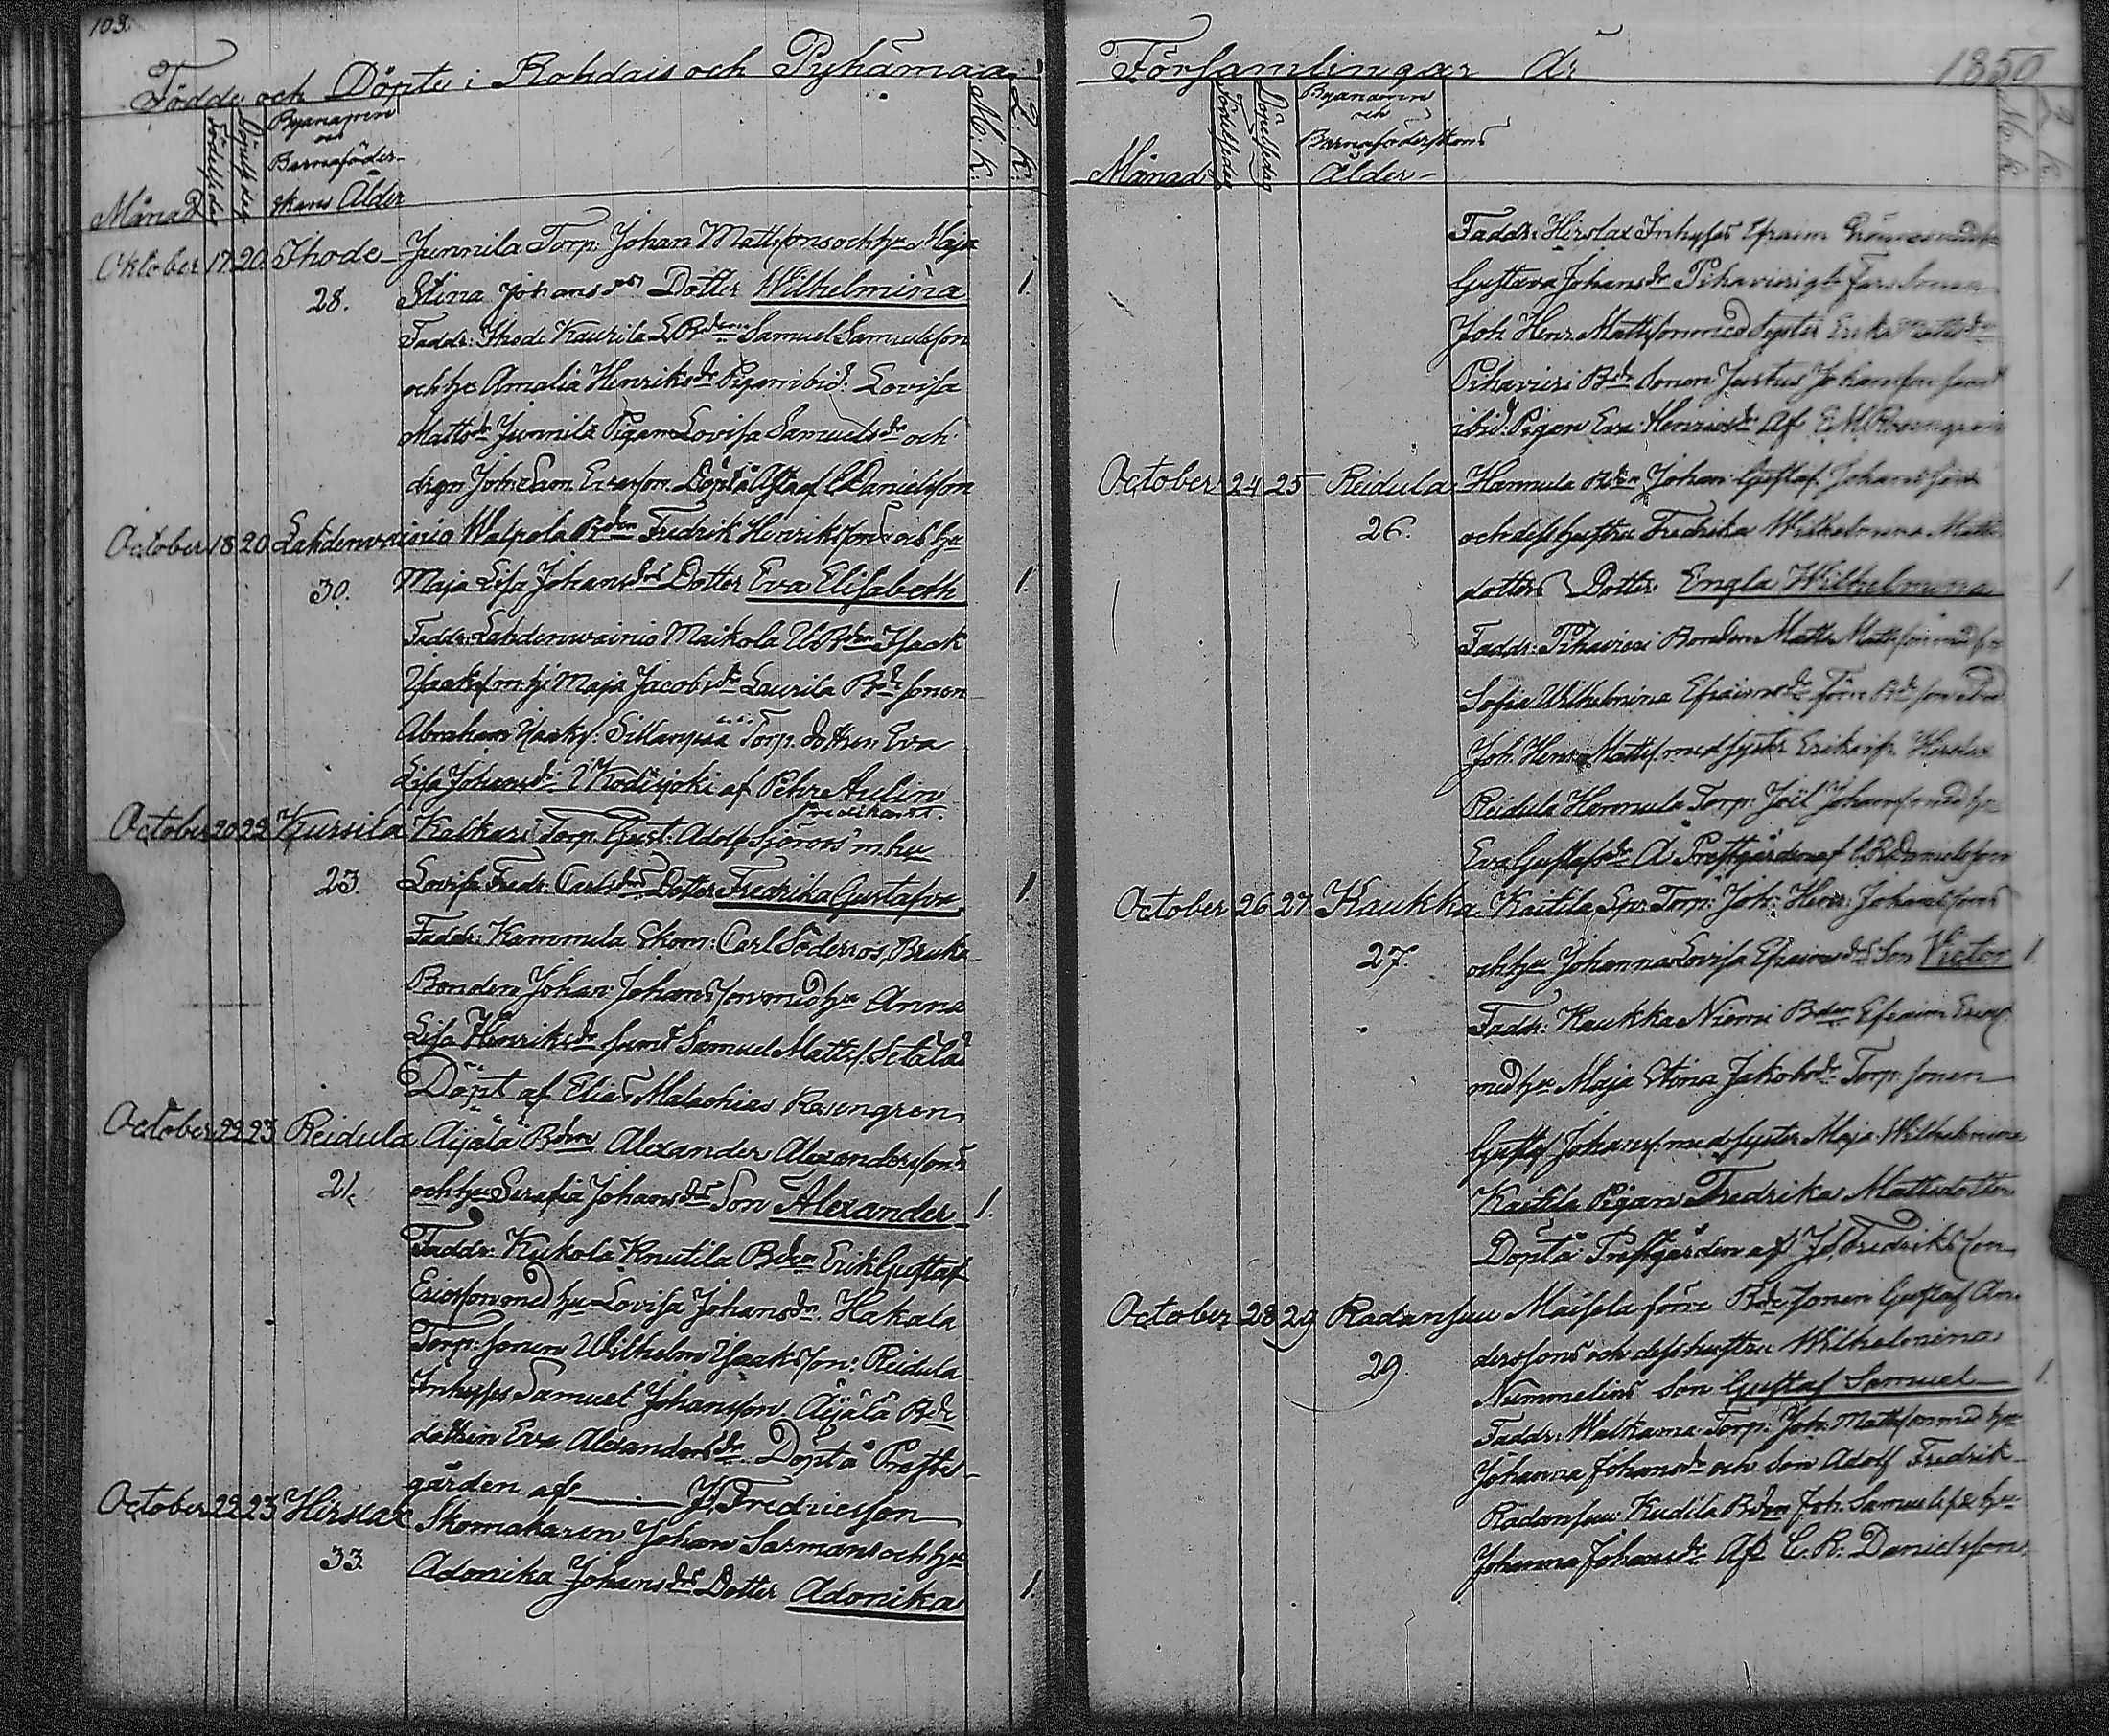 103.
Födde och Döpte i Rohdais och Pyhämaa
Månad
Födelsedag
Döpelsedag
Byanamn
och
Barnaföder-
skans Ålder
M. K.
Q. K.
Oktober 17 20 Ihode Junnila Torp: Johan Mattssons och hu Maja
28. Stina Johansdrs Dotter Wilhelmina 1.
Faddr: Ihode Kaurila Bden Samuel Samuelsson
och hu Amalia Henriksdr Pigan ibid: Lovisa
Mattsdr Junnila Pigan Lovisa Samuelsdr och
drgn Joh: Sam. Ersson. Döpt af C Danielsson
October 18 20 Lahdenvainio Walpola Bden Fredrik Henrikssons och hu
30. Maja Lisa Johansdrs Dotter Eva Elisabeth 1.
Faddr: Lahdenwainio Maikola Bden Isack
Isaksson hu Maja Jacobsdr Laurila Bd sonen
Abraham Isaks. Sillanpää Torp. dottren Eva
Lisa Johansdr. Kodisjoki af Pehr Aulin
Predikant.
October 20 22 Kursila Kalkari Torp. Gust: Adolf Sjöroos m hu
23. Lovisa Fredr: Carlsdrs Dotter Fredrika Gustafva 1.
Faddr: Kammela Skom: Carl Söderros, Bruka
Bonden Johan Johansson med hu Anna
Lisa Henriksdr samt Samuel Matts. Setälä
Döpt af Elias Malachias Rosengren
October 22 23 Reidula Äijälä Bden Alexander Alexanderssons
21. och hu Serafia Johansdrs Son Alexander 1.
Faddr: Kukola Knutila Bden Erik Gustaf
Ericsson med hu Lovisa Johansdr. Hakala
Torp: sonen Wilhelm Isaksson: Reidula
Inhyses Samuel Johansson Äijälä Bde
dottren Eva Alexandersdr. Döpt å Prest-
gården af J. Fredricsson
October 22 23 Hirslax Skomakaren Johan Sarmans och hu
33. Adonika Johansdrs Dotter Adonika 1.
Församlingar År 1850
Månad
Födelsedag
Döpelsedag
Byanamn
och
Barnaföderskans
Ålder
M. K.
Q. K.
Faddr: Hirslax Inhyses Efraim Grönroos med hu
Gustava Johansdr Pihavieri
Joh Henr. Mattsson med syster Erika Mattsdr
Pihavieri Bde sonen Justus Johansson samt
ibid: Pigan Eva Henricsdr Af E M Rosengren
October 24 25 Reidula Hannula Bden Johan Gustaf Johanssons
26. och dess hustru Fredrika Wilhelmina Matts
dotters Dotter Engla Wilhelmina 1
Faddr: Pihavieri Bonden Matts Mattsson med hu
Sofia Wilhelmina Efraimsdr Förre Bde son
Joh. Henr. Matts. med syster Erika Hirslax
Reidula Hannula Torp: Joël Johans. med hu
Eva Gustafsdr Å Prestgården af C R Danielsson
October 26 27 Kaukka Kaitila Torp: Joh: Henr: Johanssons
27. och hu Johanna Lovisa Efraimsdrs Son Victor 1
Faddr: Kaukka Niemi Bden Efraim Ers.
med hu Maja Stina Jakobsdr Torp. sonen
Gustaf Johans. med syster Maja Wilhelmina
Kaitila Pigan Fredrika Mattsdotter
Döpt å Prestgården af J. Fredriksson
October 28 29 Radansuu Maisela förre Bde sonen Gustaf An-
29. derssons och dess hustru Wilhelmina
Nummelins Son Gustaf Samuel 1.
Faddr: Walkama Torp: Joh: Mattsson med hu
Johanna Johansdr och Son Adolf Fredrik
Radansuu Kudila Bden Joh. Samuels. & hu
Johanna Johansdr Af C. R. Danielsson.